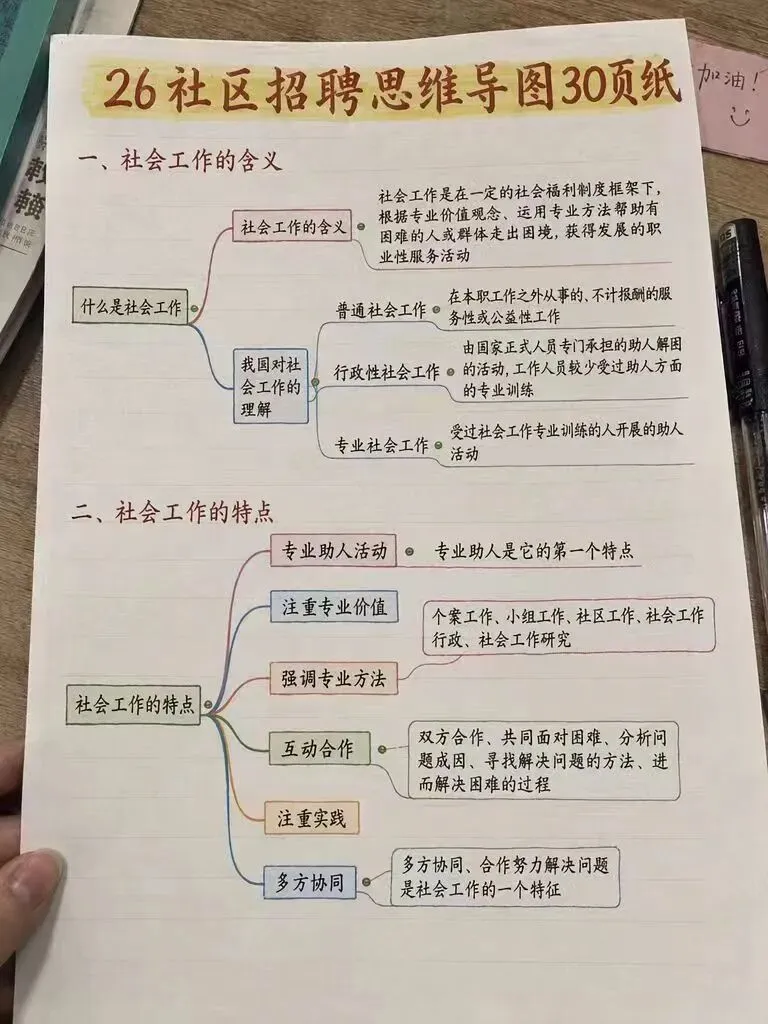 26社区招聘思维导图30页纸
加油!
一、社会工作的含义
社会工作的含义
社会工作是在一定的社会福利制度框架下,
根据专业价值观念、运用专业方法帮助有
困难的人或群体走出困境,获得发展的职
业性服务活动
什么是社会工作
我国对社
会工作的
理解
普通社会工作
在本职工作之外从事的、不计报酬的服
务性或公益性工作
行政性社会工作
由国家正式人员专门承担的助人解困
的活动,工作人员较少受过助人方面
的专业训练
专业社会工作
受过社会工作专业训练的人开展的助人
活动
二、社会工作的特点
社会工作的特点
专业助人活动
专业助人是它的第一个特点
注重专业价值
强调专业方法
个案工作、小组工作、社区工作、社会工作
行政、社会工作研究
互动合作
双方合作、共同面对困难、分析问
题成因、寻找解决问题的方法、进
而解决困难的过程
注重实践
多方协同
多方协同、合作努力解决问题
是社会工作的一个特征